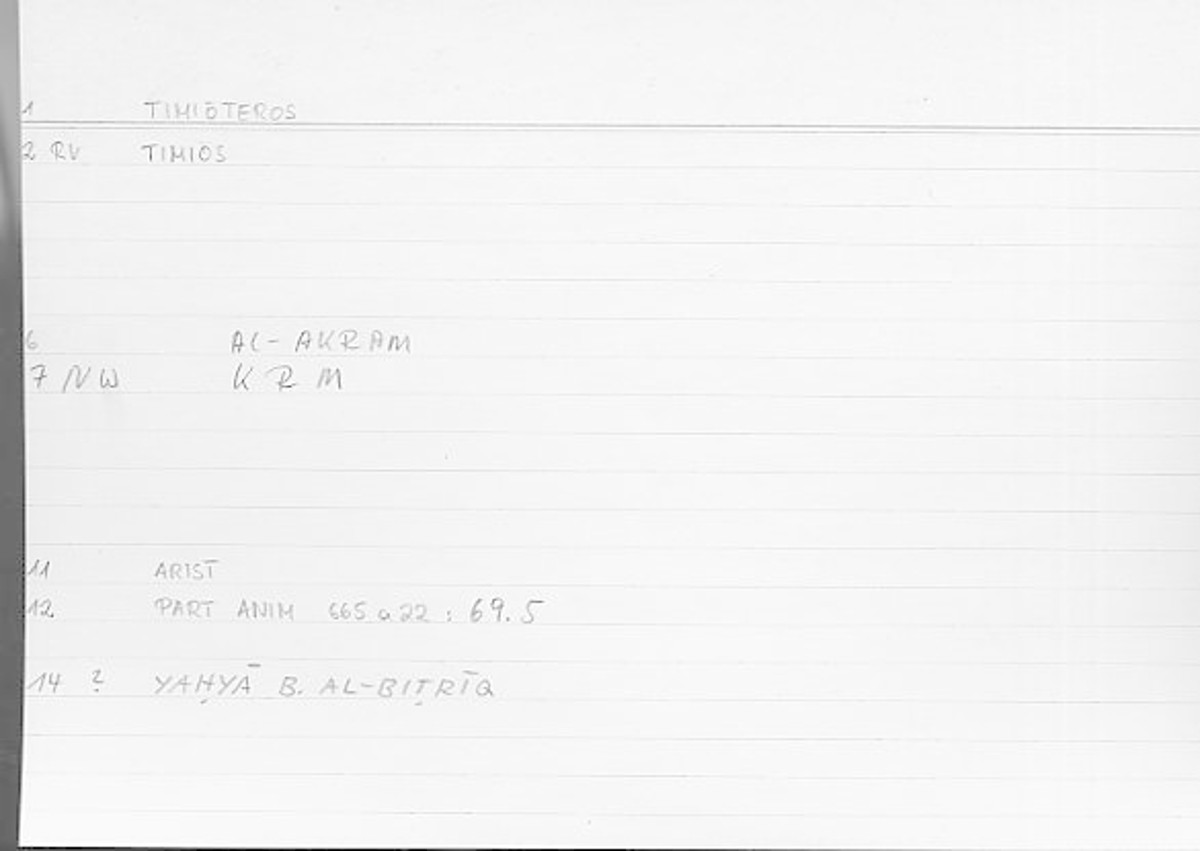 1 TIMIŌTEROS
2 RV TIMIOS
6 AL-AKRAM
7 NW K R M
11 ARIST
12 PART ANIM 665a22 : 69.5
14 ? YAḤYĀ B. AL-BIṬRĪQ